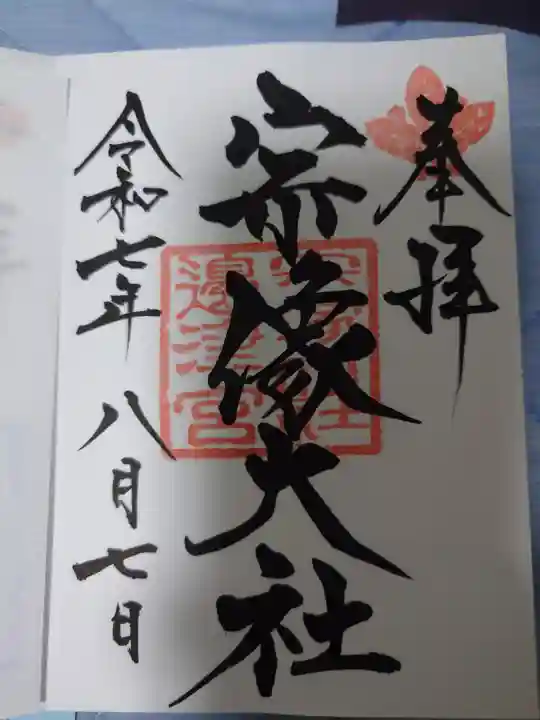 奉拝
宗像大社
令和七年 八月七日
宗像大社
邊津宮